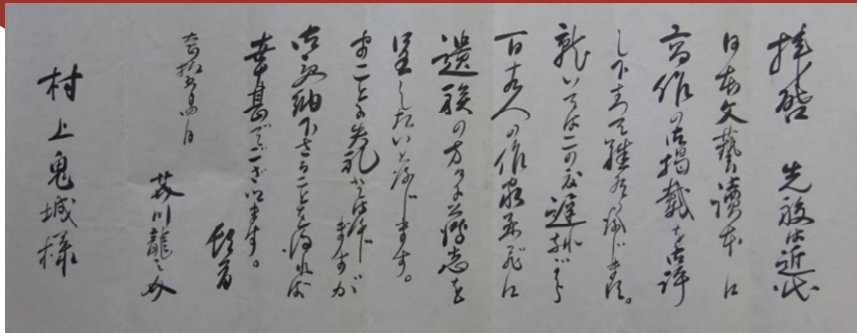 拝啓 先般は近代
日本文藝讀本に
高作の御掲載を御許
し下さつて難有く存じます。
就いてはこの度
百十九人の作家並びに
遺族の方々に薄志を
呈したいと存じます。
まことに失礼とは存じますが
御受納下さることを得れば
幸甚でございます。
頓首
芥川龍之介
村上鬼城様